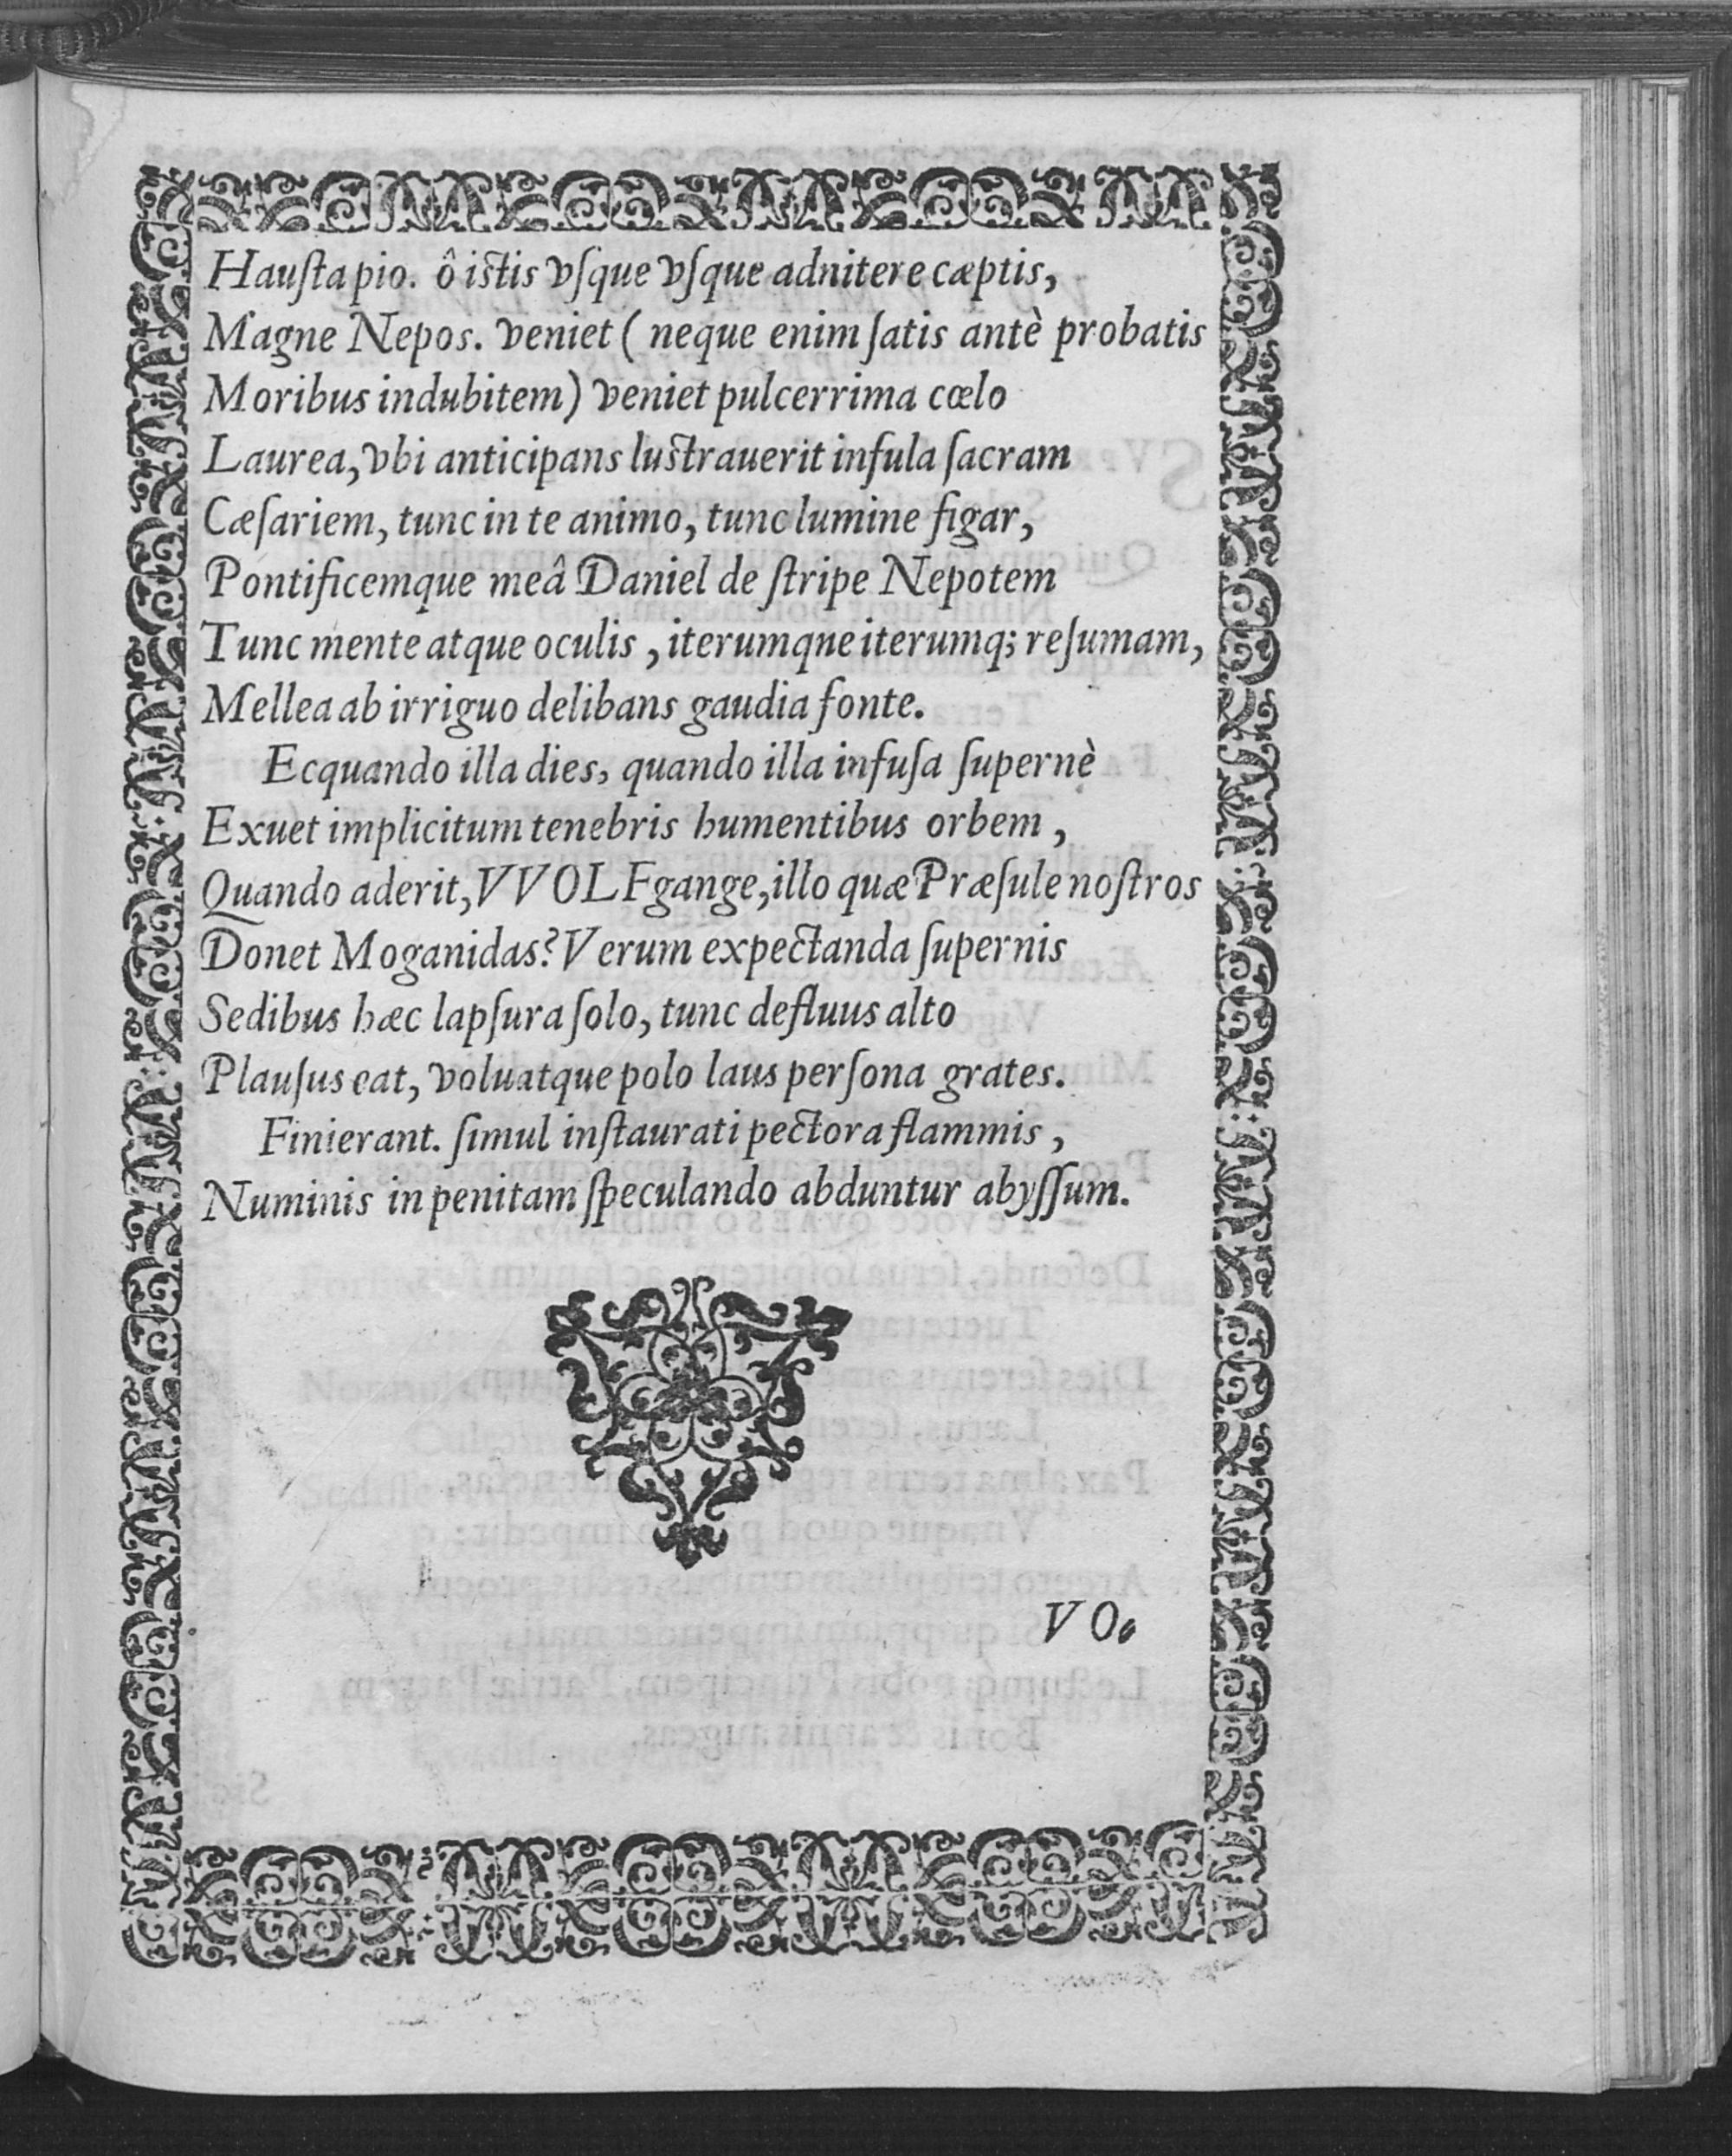 Hauſta pio. ô iſtis vſque vſque adnitere cæptis,
Magne Nepos. veniet ( neque enim ſatis antè probatis
Moribus indubitem) veniet pulcerrima cœlo
Laurea, vbi anticipans luſtrauerit infula ſacram
Cæſariem, tunc in te animo, tunc lumine figar,
Pontificemque meâ Daniel de ſtripe Nepotem
Tunc mente atque oculis , iterumqne iterumq; reſumam,
Mellea ab irriguo delibans gaudia fonte.
Ecquando illa dies, quando illa infuſa ſupernè
Exuet implicitum tenebris humentibus orbem ,
Quando aderit, VVOLFgange, illo quæ Præſule noſtros
Donet Moganidas? Verum expectanda ſupernis
Sedibus hæc lapſura ſolo, tunc defluus alto
Plauſus eat, voluatque polo laus perſona grates.
Finierant. ſimul inſtaurati pectora flammis ,
Numinis in penitam ſpeculando abduntur abyſſum.
VO.